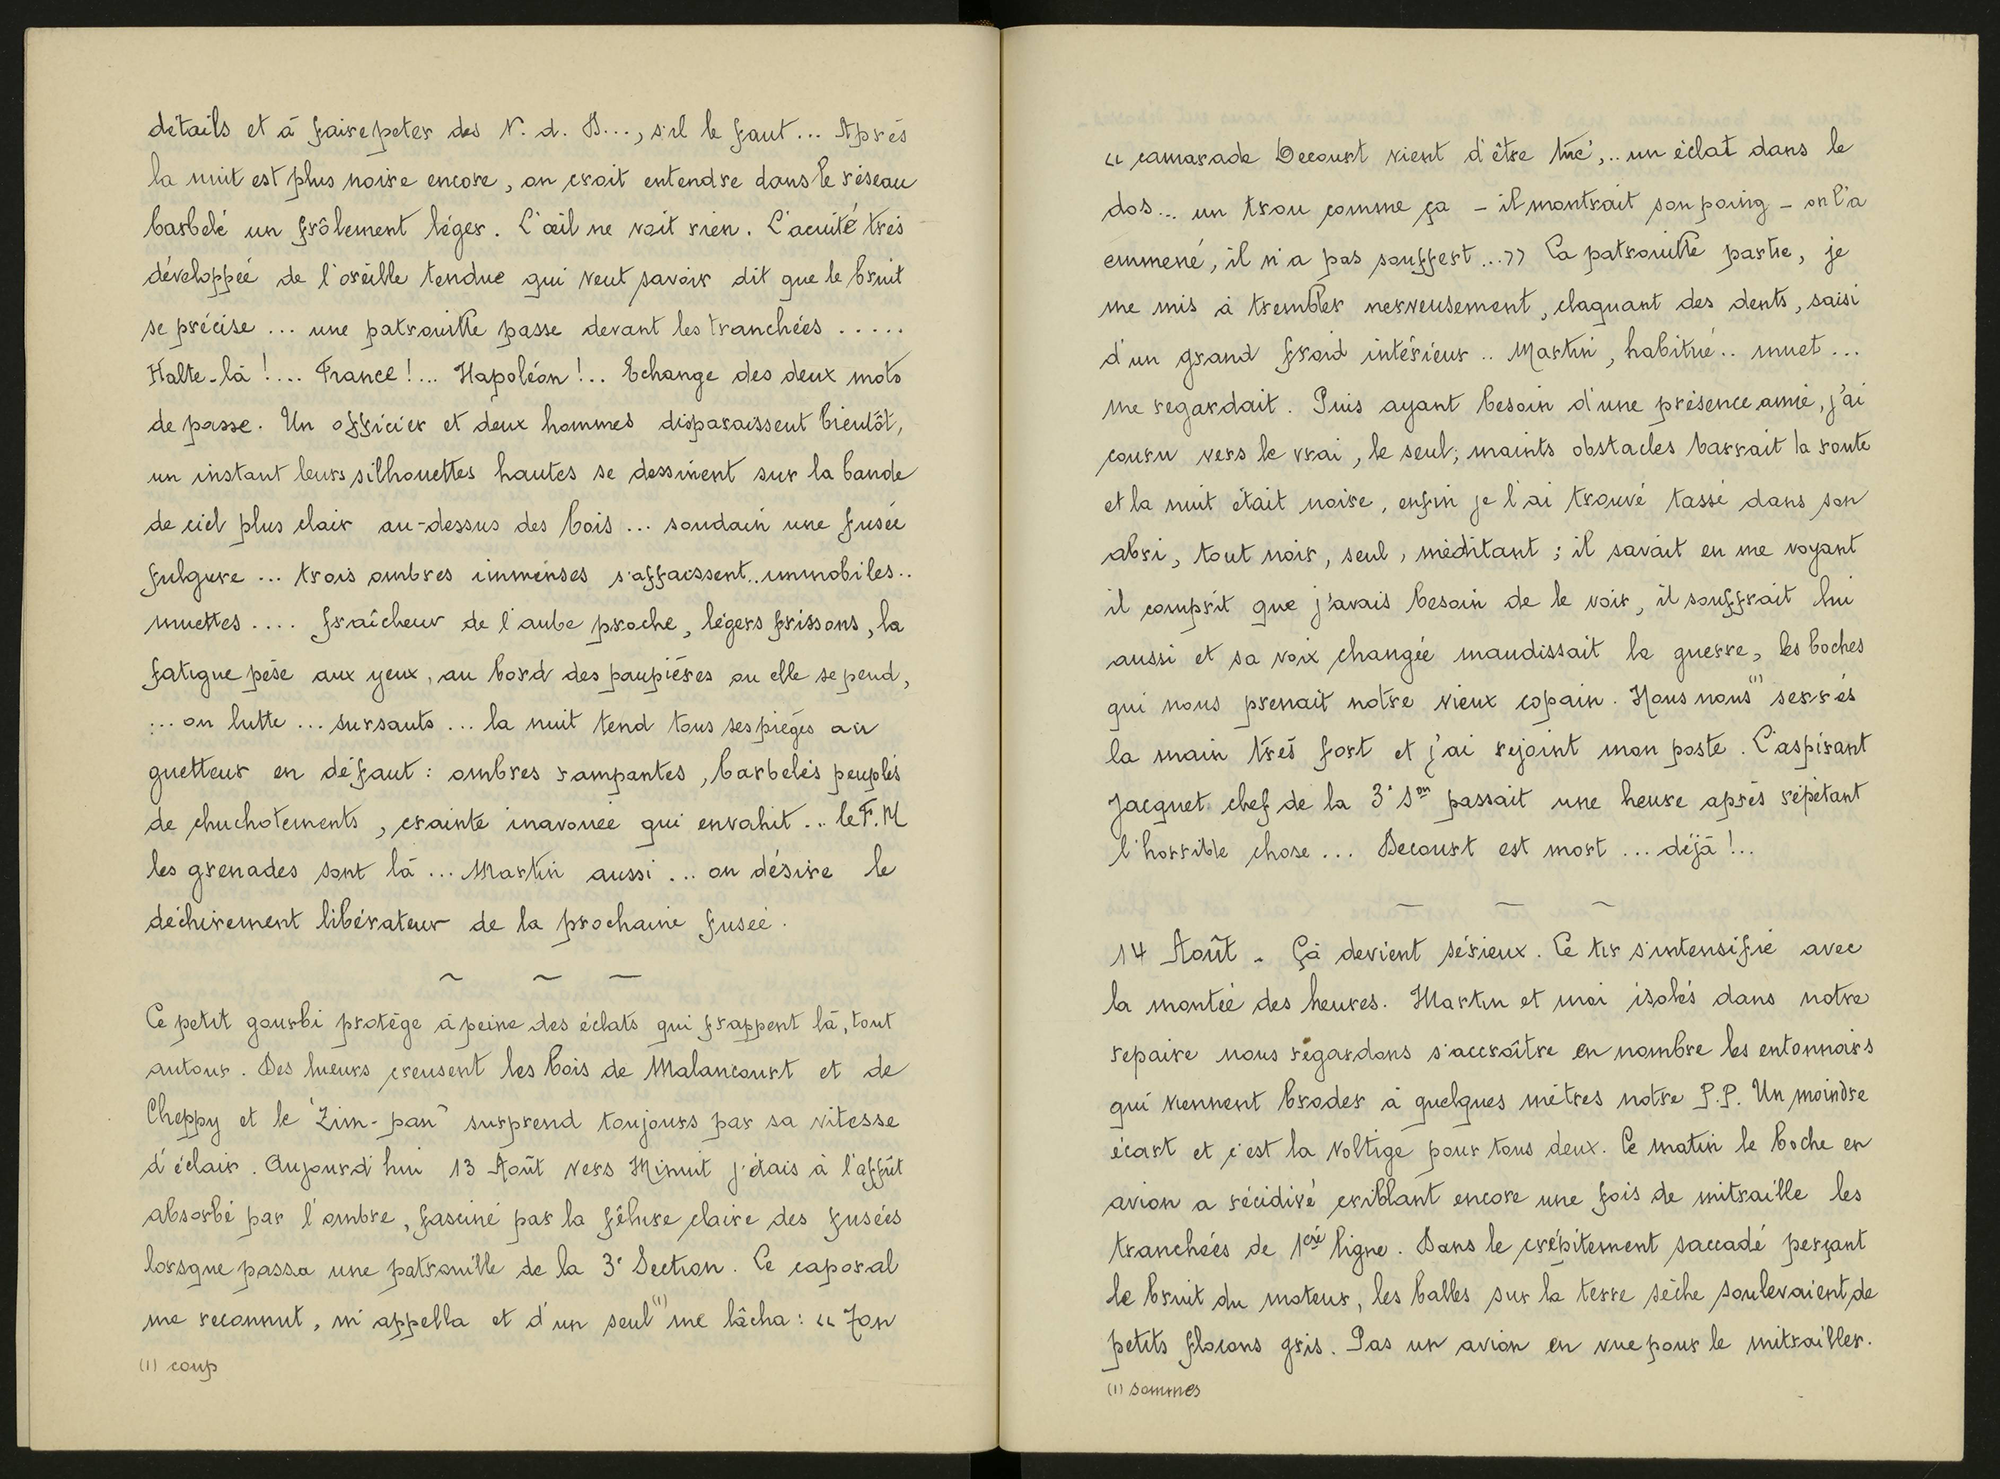 détails et à faire peter des N. d. D..., s'il le faut... Après
la nuit est plus noire encore, on croit entendre dans le réseau
barbelé un frôlement léger. L'œil ne voit rien. L'acuité très
développée de l'oreille tendue qui veut savoir dit que le bruit
se précise ... une patrouille passe devant les tranchées .....
Halte-là !... France !... Napoléon !.. Echange des deux mots
de passe. Un officier et deux hommes disparaissent bientôt,
un instant leurs silhouettes hautes se dessinent sur la bande
de ciel plus clair au-dessus des bois ... soudain une fusée
fulgure ... trois ombres immenses s'affaissent..immobiles..
muettes .... fraîcheur de l'aube proche, légers frissons, la
fatigue pèse aux yeux, au bord des paupières ou elle se pend,
... on lutte ... sursauts ... la nuit tend tous ses pièges au
guetteur en défaut : ombres rampantes, barbelés peuplés
de chuchotements, crainte inavouée qui envahit... le F.M
les grenades sont là ... Martin aussi ... on désire le
déchirement libérateur de la prochaine fusée.
~ ~ ~
Ce petit gourbi protège à peine des éclats qui frappent là, tout
autour. Des lueurs creusent les bois de Malancourt et de
Cheppy et le "Zim-pan" surprend toujours par sa vitesse
d'éclair. Aujourd'hui 13 Août vers Minuit j'étais à l'affût
absorbé par l'ombre, fasciné par la fêlure claire des fusées
lorsque passa une patrouille de la 3e Section. Le caporal
me reconnut, m'appella et d'un seul (1) me lâcha : « Ton
(1) coup
« camarade Decourt vient d'être tué,.. un éclat dans le
dos... un trou comme ça - il montrait son poing - on l'a
emmené, il n'a pas souffert ...» La patrouille partie, je
me mis à trembler nerveusement, claquant des dents, saisi
d'un grand froid intérieur .. Martin, habitué .. muet ...
me regardait. Puis ayant besoin d'une présence amie, j'ai
couru vers le vrai, le seul; maints obstacles barrait la route
et la nuit était noire, enfin je l'ai trouvé tassé dans son
abri, tout noir, seul, méditant ; il savait en me voyant
il comprit que j'avais besoin de le voir, il souffrait lui
aussi et sa voix changée maudissait la guerre, les boches
qui nous prenait notre vieux copain. Nous nous (1) serrés
la main très fort et j'ai rejoint mon poste. L'aspirant
Jacquet chef de la 3e Son passait une heure après répétant
l'horrible chose ... Decourt est mort ... déjà !..
~ ~ ~
14 Août - Çà devient sérieux. Le tir s'intensifie avec
la montée des heures. Martin et moi isolés dans notre
repaire nous regardons s'accroître en nombre les entonnoirs
qui viennent broder à quelques mètres notre P.P. Un moindre
écart et c'est la voltige pour tous deux. Ce matin le boche en
avion a récidivé criblant encore une fois de mitraille les
tranchées de 1ère ligne. Dans le crépitement saccadé perçant
le bruit du moteur, les balles sur la terre sèche soulevaient de
petits flocons gris. Pas un avion en vue pour le mitrailler.
(1) sommes